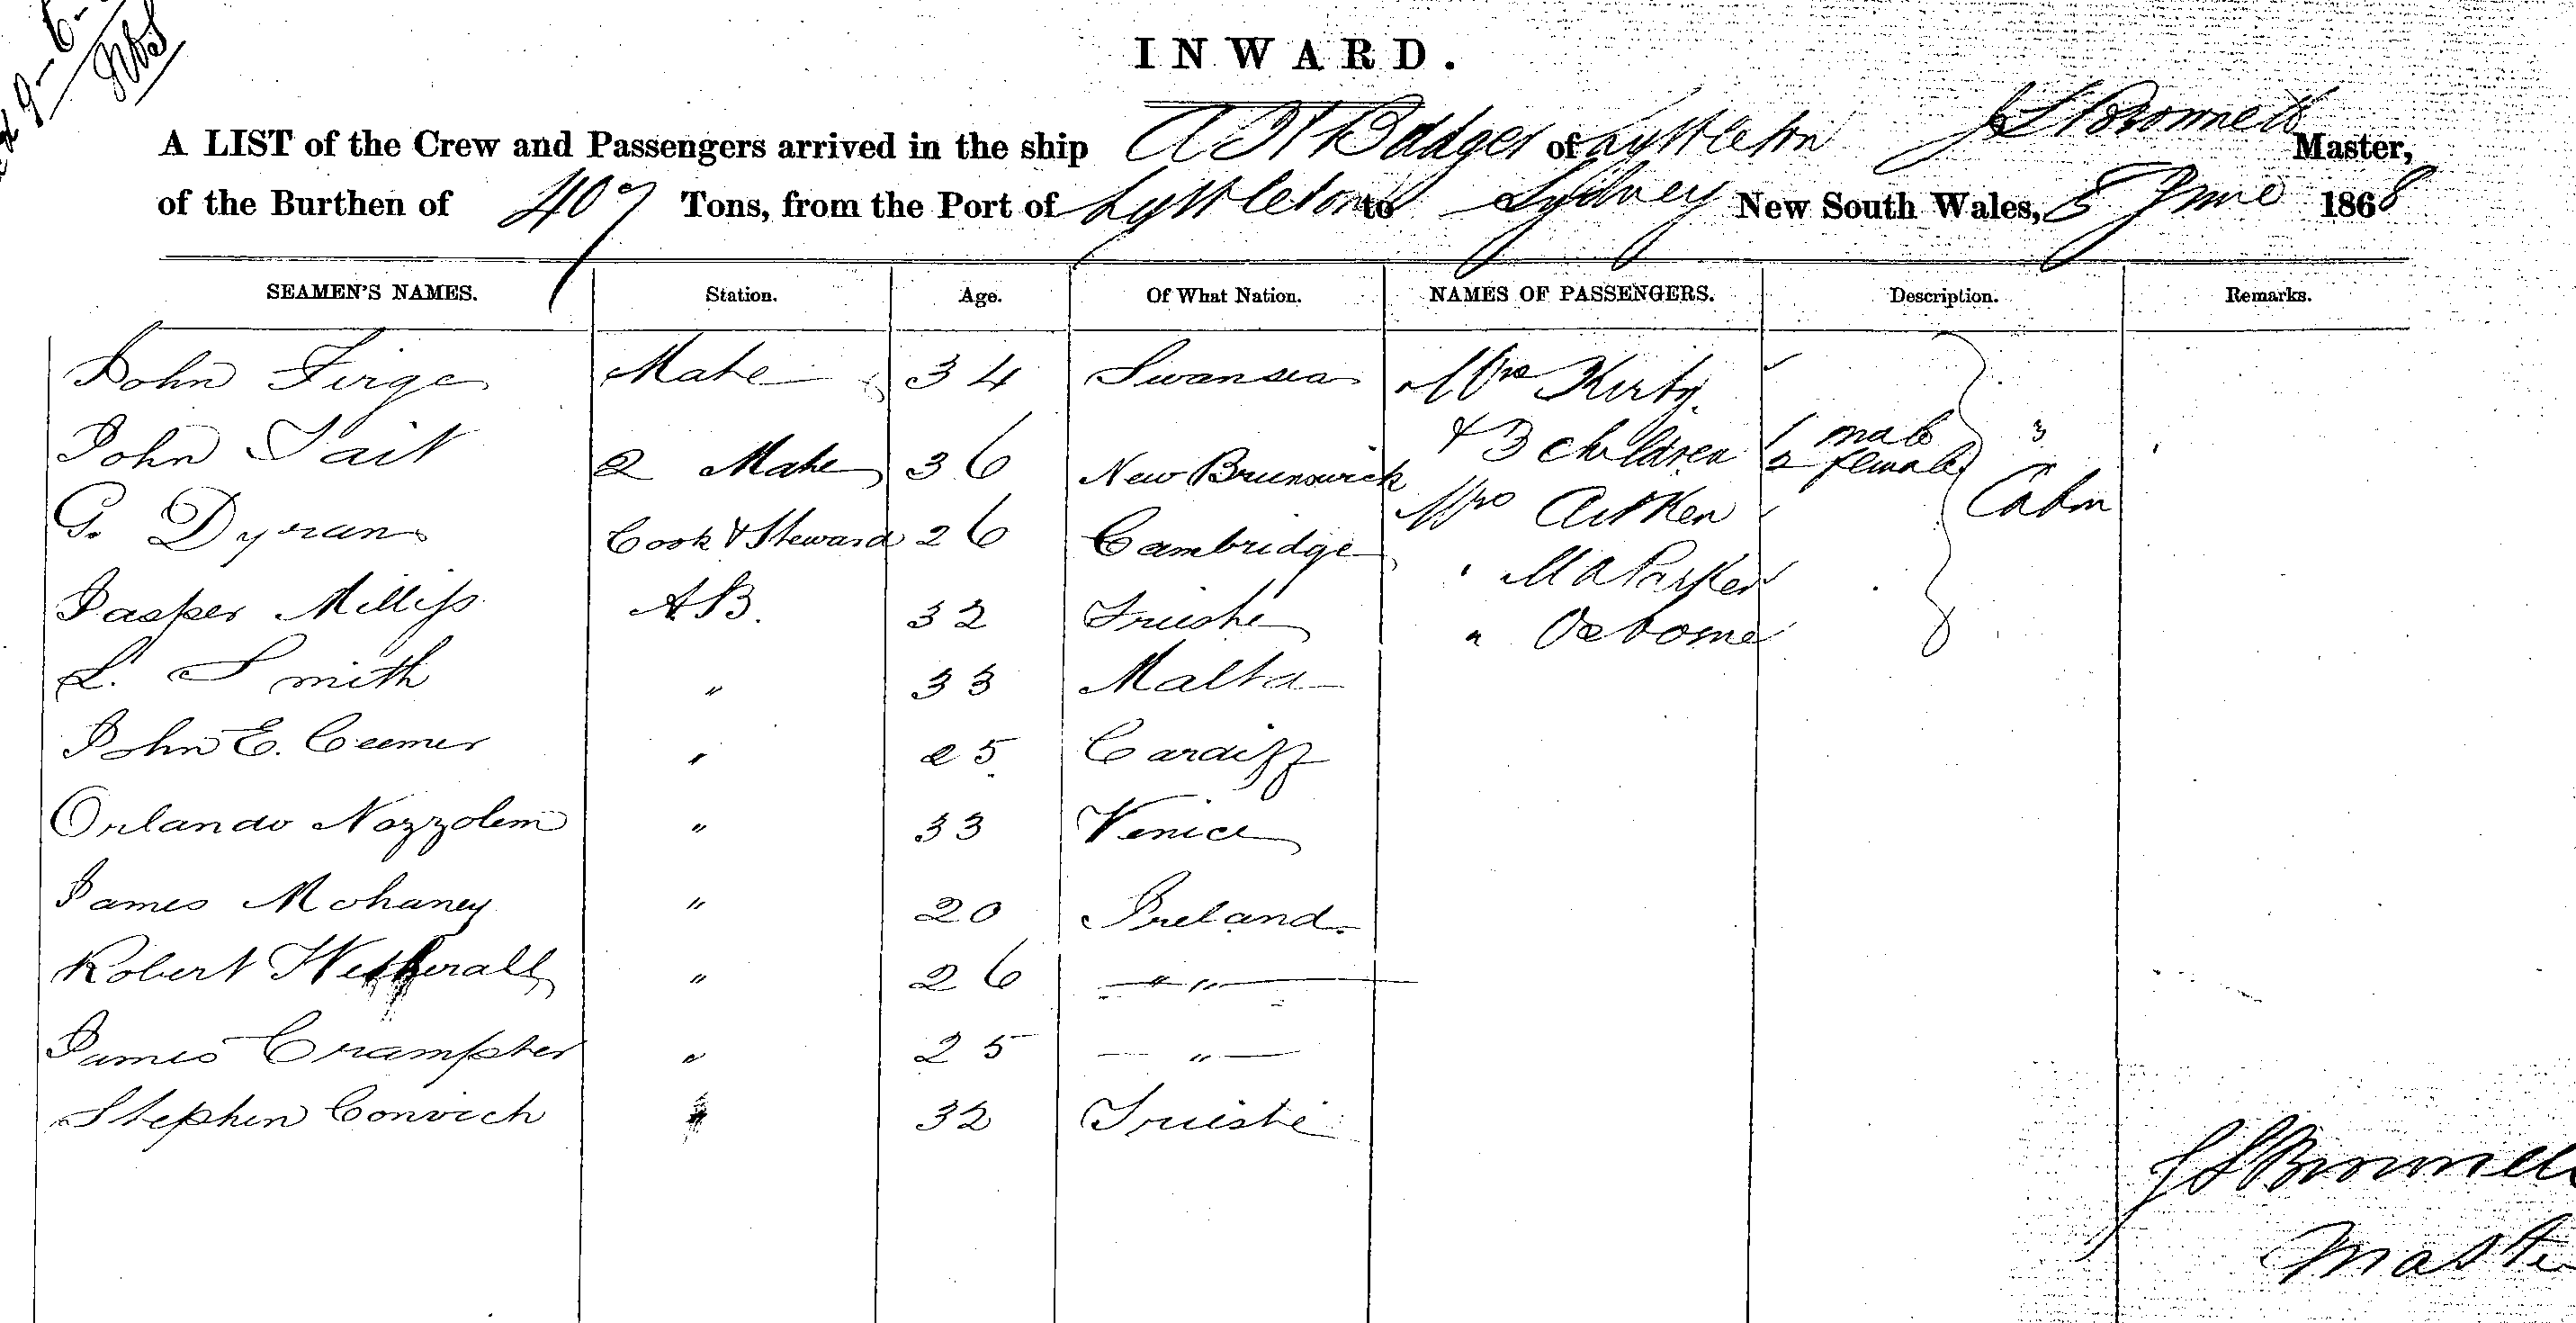 INWARD.
A LIST of the Crew and Passengers arrived in the ship A H Badger of Lyttleton J L Bronnell Master,
of the Burthen of 407 Tons, from the Port of Lyttleton to Sydney New South Wales, 8 June 1868
SEAMEN'S NAMES. Station. Age. Of What Nation. NAMES OF PASSENGERS. Description. Remarks.
John Firge Mate 34 Swansea Mrs Kirby
John Tait 2 Mate 36 New Brunswick & 3 children 1 male 2 female
G. Dyran Cook & Steward 26 Cambridge Mrs Aitken Cabin
Jasper Milliss AB. 32 Trieste " M A Parker
L. Smith " 33 Malta " Osborne
John E. Ceemer " 25 Cardiff
Orlando Nozzolem " 33 Venice
James Mohaney " 20 Ireland
Robert Wetherall " 26 "
James Crampter " 25 "
Stephen Convich " 32 Trieste
J L Bronnell
Master